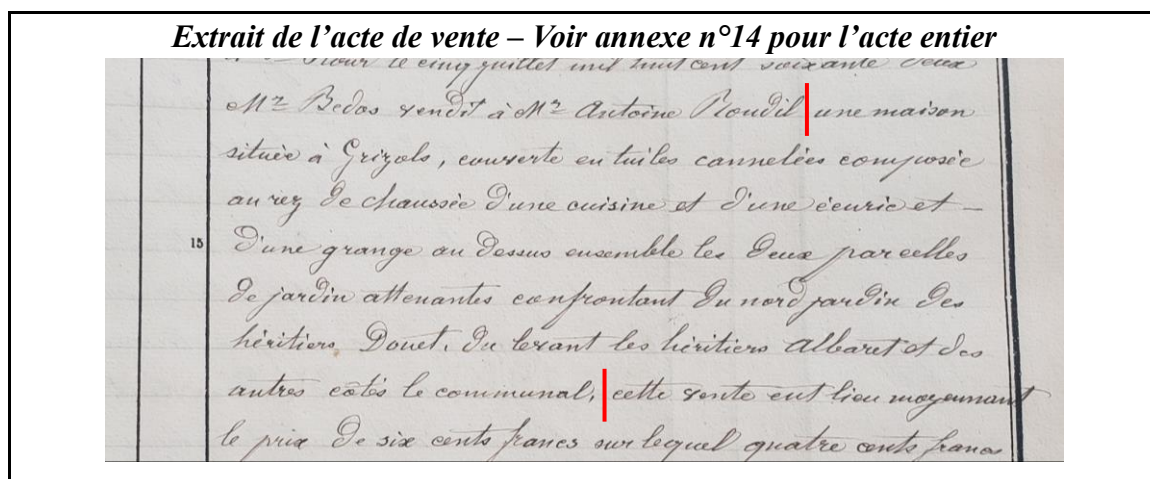 Extrait de l’acte de vente – Voir annexe n°14 pour l’acte entier
jour le cinq juillet mil huit cent soixante deux
Mr Bedos vendit à Mr Antoine Roudil une maison
située à Grizols, couverte en tuiles cannelées composée
au rez de chaussée d'une cuisine et d'une écurie et –
15 d'une grange au dessus ensemble les deux parcelles
de jardin attenantes confrontant du nord jardin des
héritiers Douet, du levant les héritiers Albaret et des
autres côtés le communal, cette vente eut lieu moyennant
le prix de six cents francs sur lequel quatre cents francs